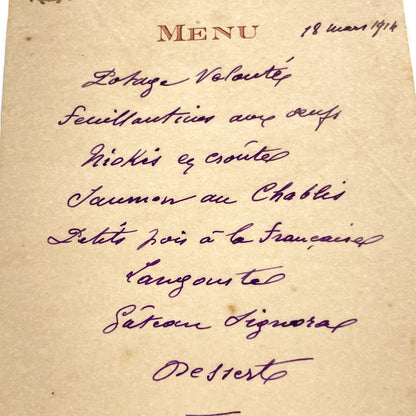 MENU
18 mars 1914
Potage Velouté
Feuillantines aux œufs
Niokis en croûte
Saumon au Chablis
Petits pois à la Française
Langouste
Gâteau Signora
Dessert